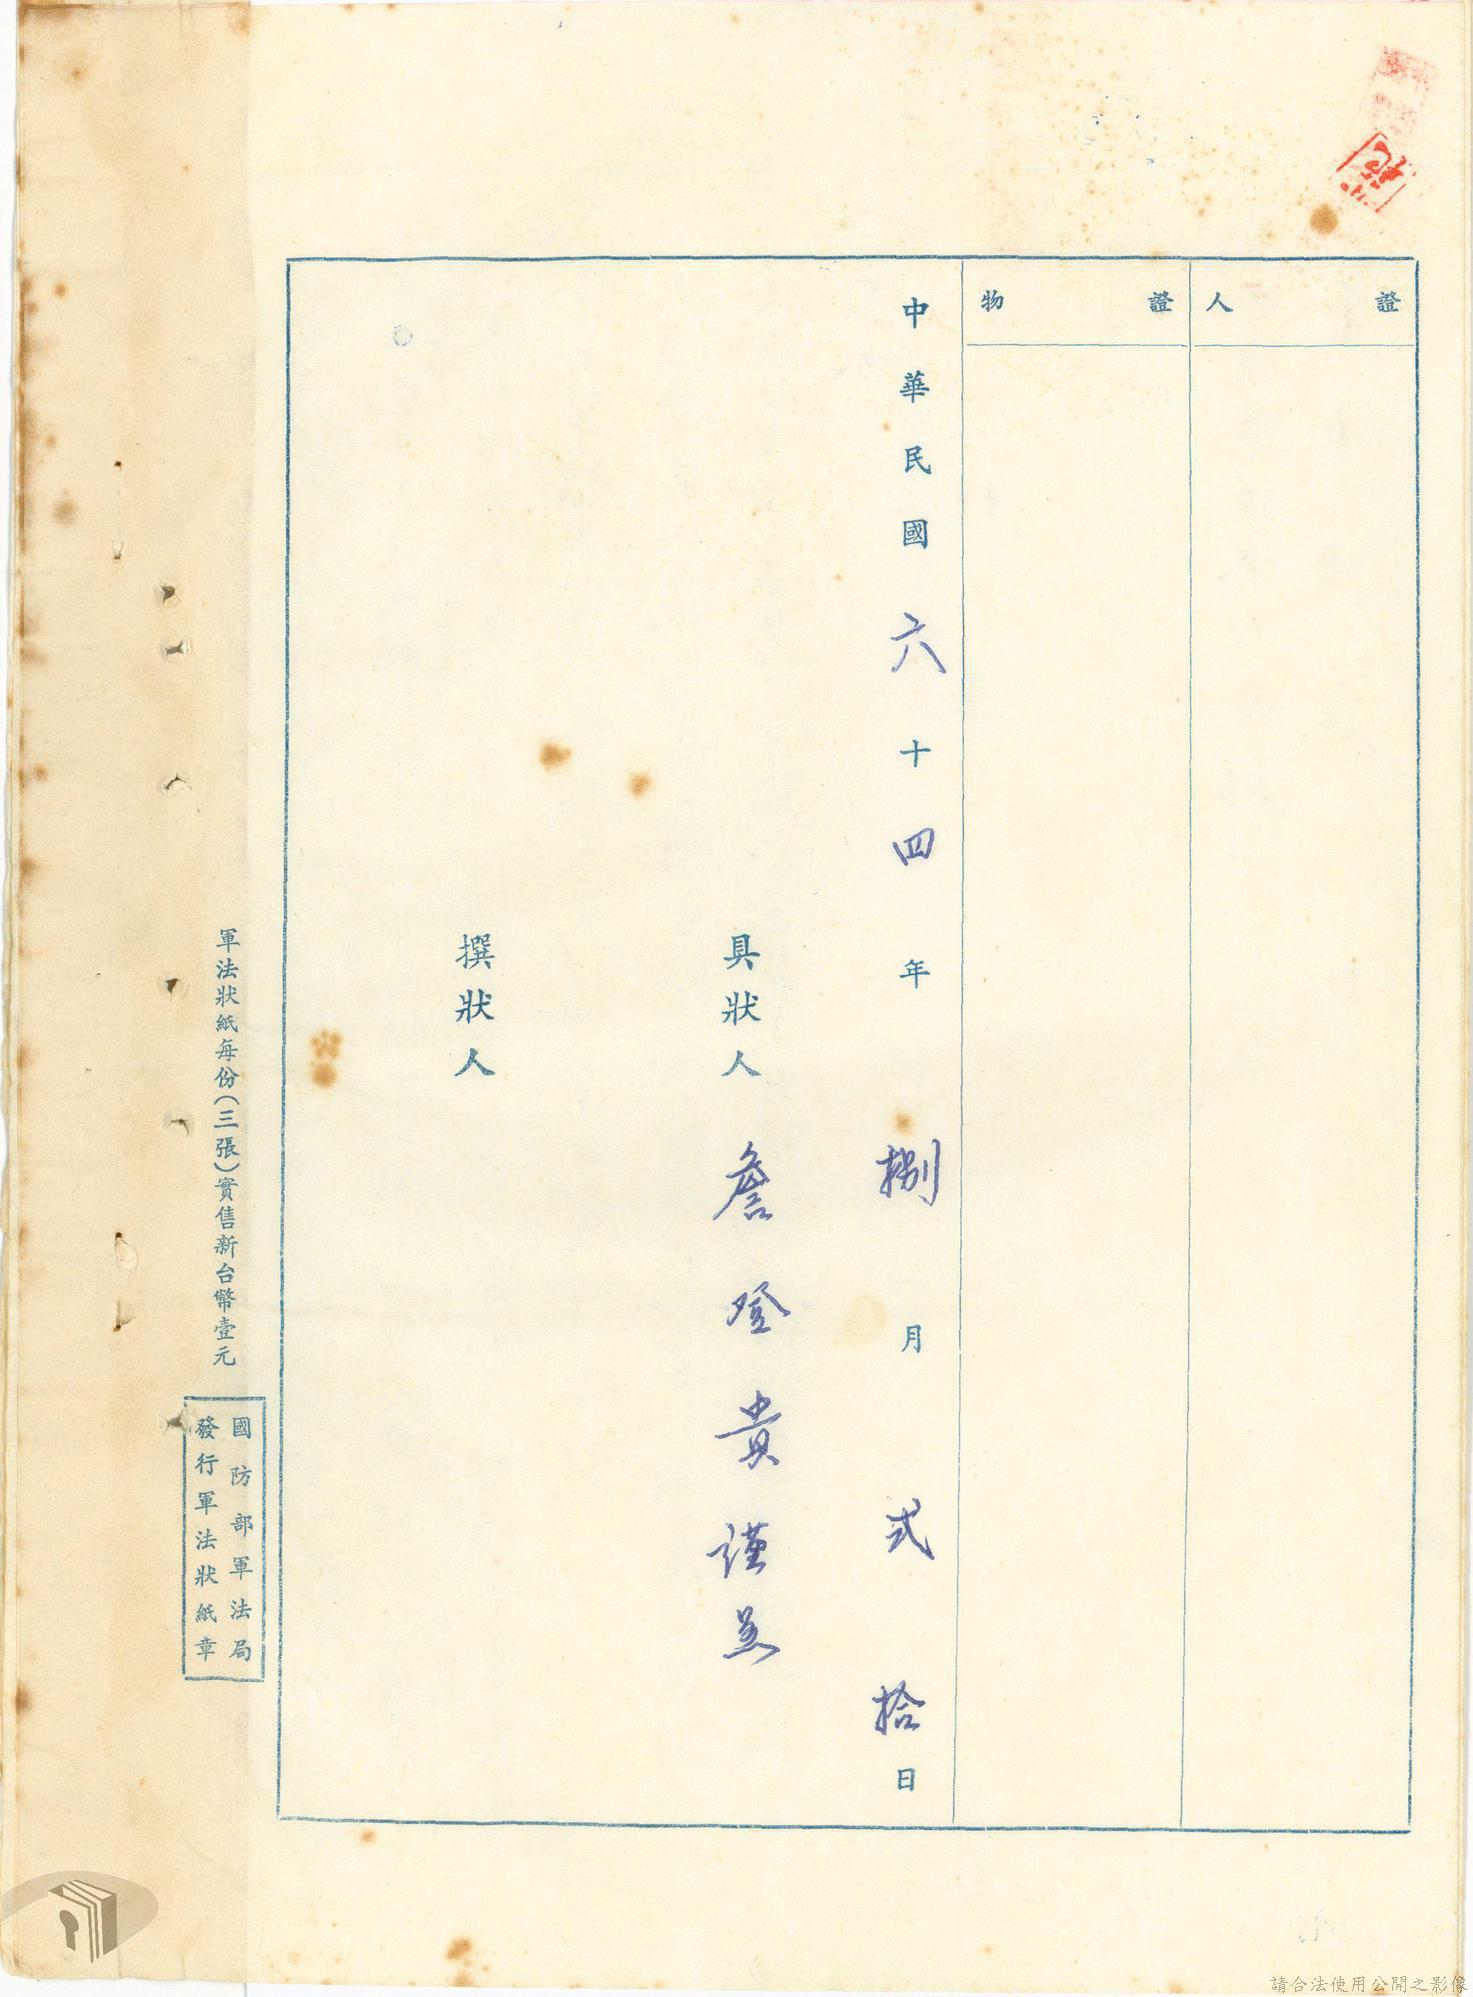 證人
證物
中華民國六十四年捌月弍拾日
具狀人 詹登貴謹呈
撰狀人
國防部軍法局
發行軍法狀紙章
軍法狀紙每份(三張)實售新台幣壹元
請合法使用公開之影像